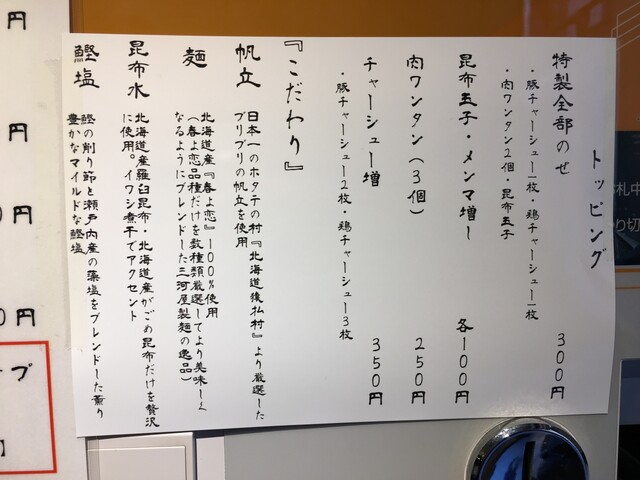 トッピング
特製全部のせ 300円
・豚チャーシュー一枚・鶏チャーシュー一枚
・肉ワンタン2個・昆布玉子
昆布玉子・メンマ増し 各100円
肉ワンタン(3個) 250円
チャーシュー増 350円
・豚チャーシュー2枚・鶏チャーシュー3枚
『こだわり』
帆立 日本一のホタテの村『北海道猿払村』より厳選した
プリプリの帆立を使用
麺 北海道産『春よ恋』100%使用
(春よ恋品種だけを数種類厳選してより美味しく
なるようにブレンドした三河屋製麺の逸品)
昆布水 北海道産羅臼昆布・北海道産がごめ昆布だけを贅沢
に使用。イワシ煮干でアクセント
鰹塩 鰹の削り節と瀬戸内産の藻塩をブレンドした薫り
豊かなマイルドな鰹塩
円
円
0円
0円
ブ
】
札中
り切